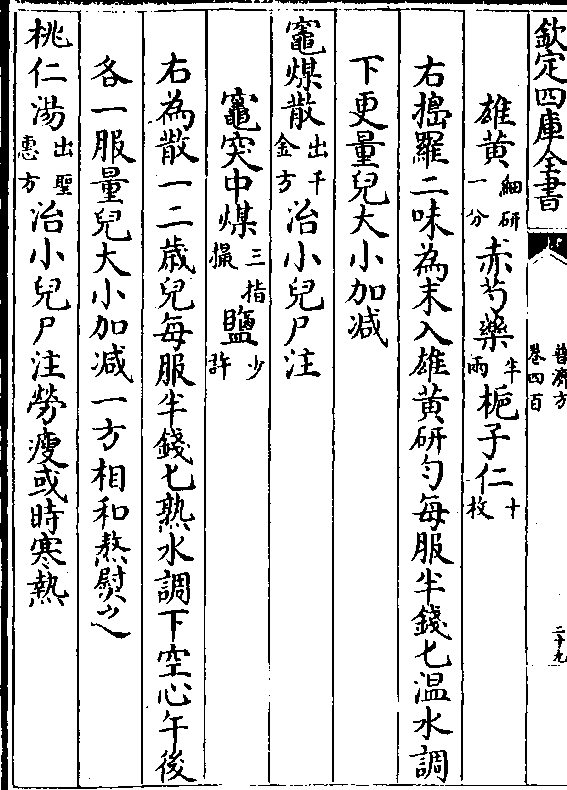 欽定四庫全書
普濟方
卷四百
二十九
雄黃細研一分赤芍藥半兩梔子仁十枚
右搗羅二味為末入雄黃研勻每服半錢匕温水調
下更量兒大小加減
竈煤散出千金方治小兒尸注
竈突中煤三指撮鹽少許
右為散一二歳兒每服半錢匕熟水調下空心午後
各一服量兒大小加减一方相和熬熨之
桃仁湯出聖惠方治小兒尸注勞瘦或時寒熱